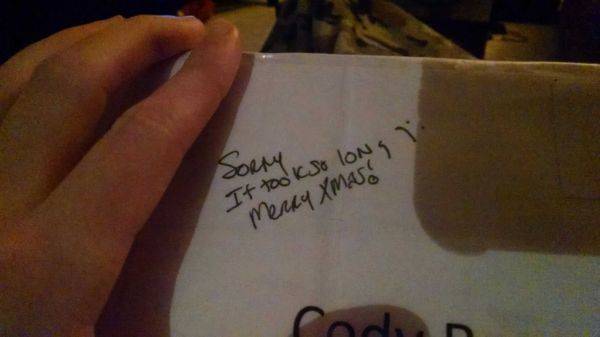 Sorry
It took so long ):
Merry Xmas!
Cody